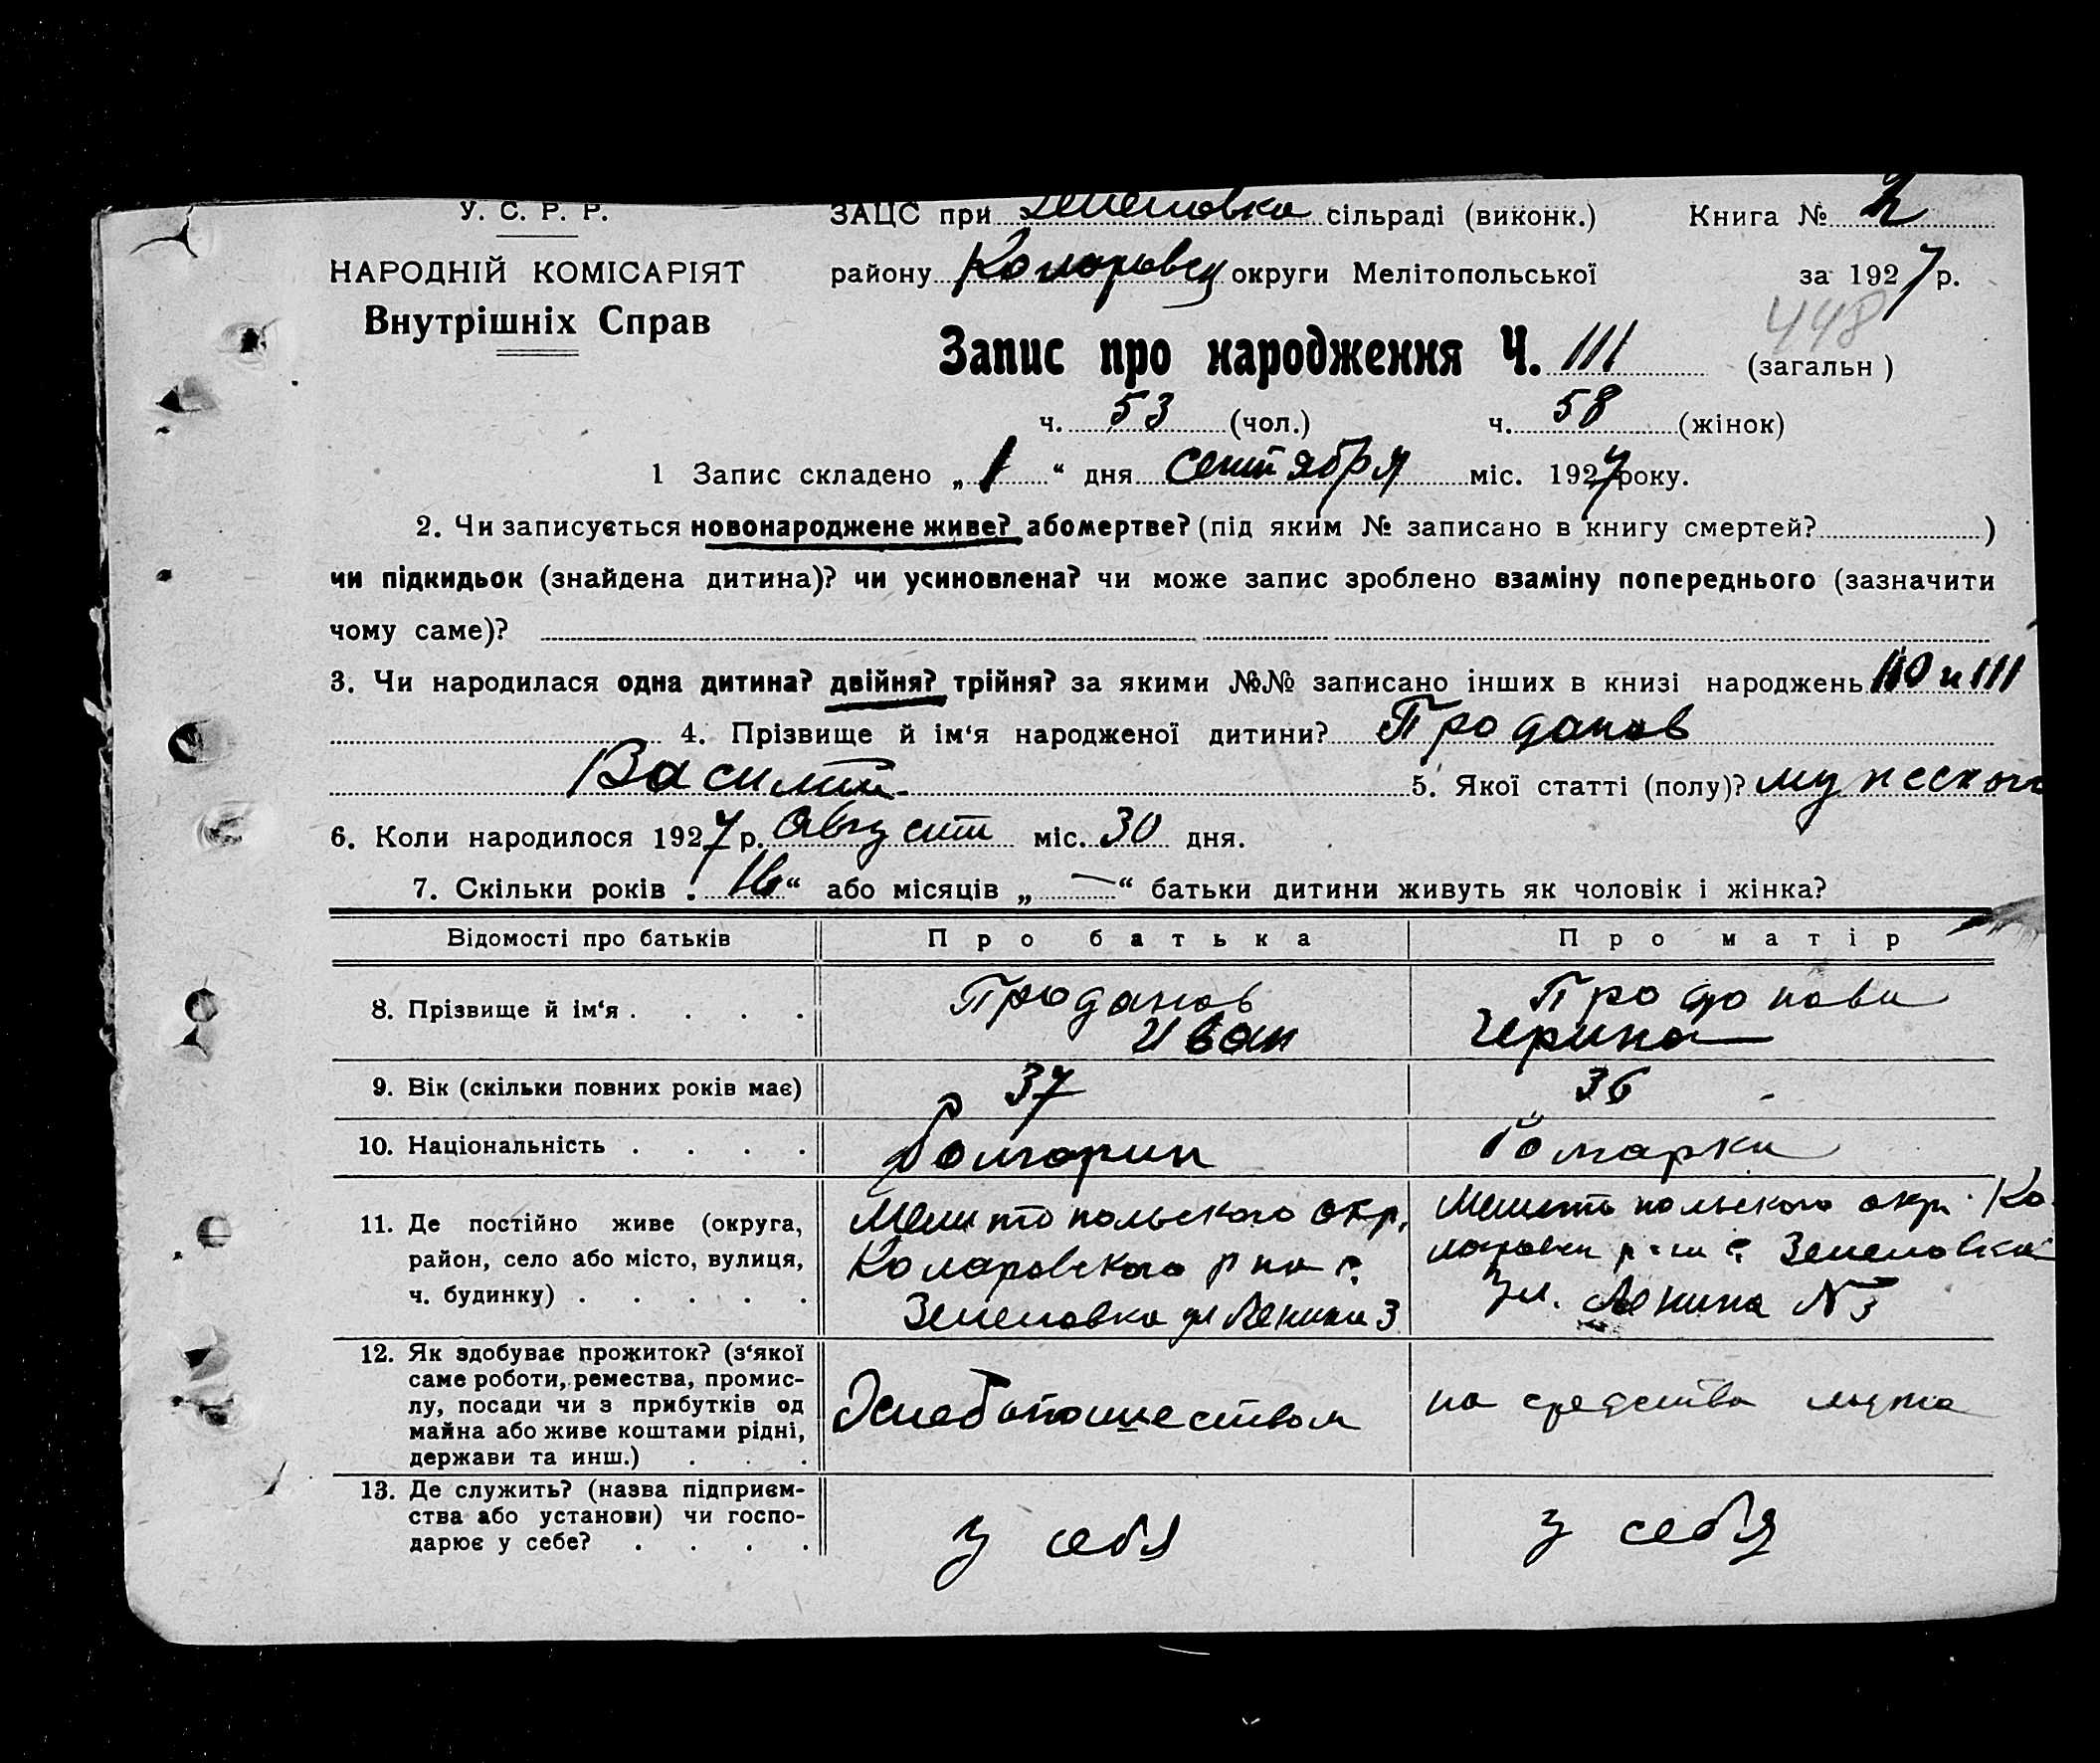 У. С. Р. Р.
НАРОДНІЙ КОМІСАРІЯТ
Внутрішніх Справ
ЗАЦС при Зеленовка сільраді (виконк.) Книга № 2
району Коларовск округи Мелітопольської за 1927 р.
448
Запис про народження Ч. 111 (загальн)
ч. 53 (чол.) ч. 58 (жінок)
1 Запис складено „1“ дня сентября міс. 1927 року.
2. Чи записується новонароджене живе? або мертве? (під яким № записано в книгу смертей? )
чи підкидьок (знайдена дитина)? чи усиновлена? чи може запис зроблено взаміну попереднього (зазначити
чому саме)?
3. Чи народилася одна дитина? двійня? трійня? за якими №№ записано інших в книзі народжень 110 и 111
4. Прізвище й ім‘я народженої дитини? Проданов
Василий 5. Якої статті (полу)?
6. Коли народилося 1927 р. Август міс. 30 дня.
7. Скільки років 16“ або місяців „—“ батьки дитини живуть як чоловік і жінка?
Відомості про батьків Про батька Про матір
8. Прізвище й ім‘я . . . . Проданов Проданова
Иван Ирина
9. Вік (скільки повних років має) 37 36
10. Національність . . . . болгарин болгарка
11. Де постійно живе (округа, Мелитопольского окр. Мелитопольского окр. Ко-
район, село або місто, вулиця, Коларовского р на с. с. Зеленовка
ч. будинку) . . . . . Зеленовка ул Ленина 3 ул. Ленина № 3
12. Як здобуває прожиток? (з‘якої
саме роботи, ремества, промис-
лу, посади чи з прибутків од на средства мужа
майна або живе коштами рідні,
держави та инш.) . . .
13. Де служить? (назва підприєм-
ства або установи) чи госпо- у себя у себя
дарює у себе? . . . .